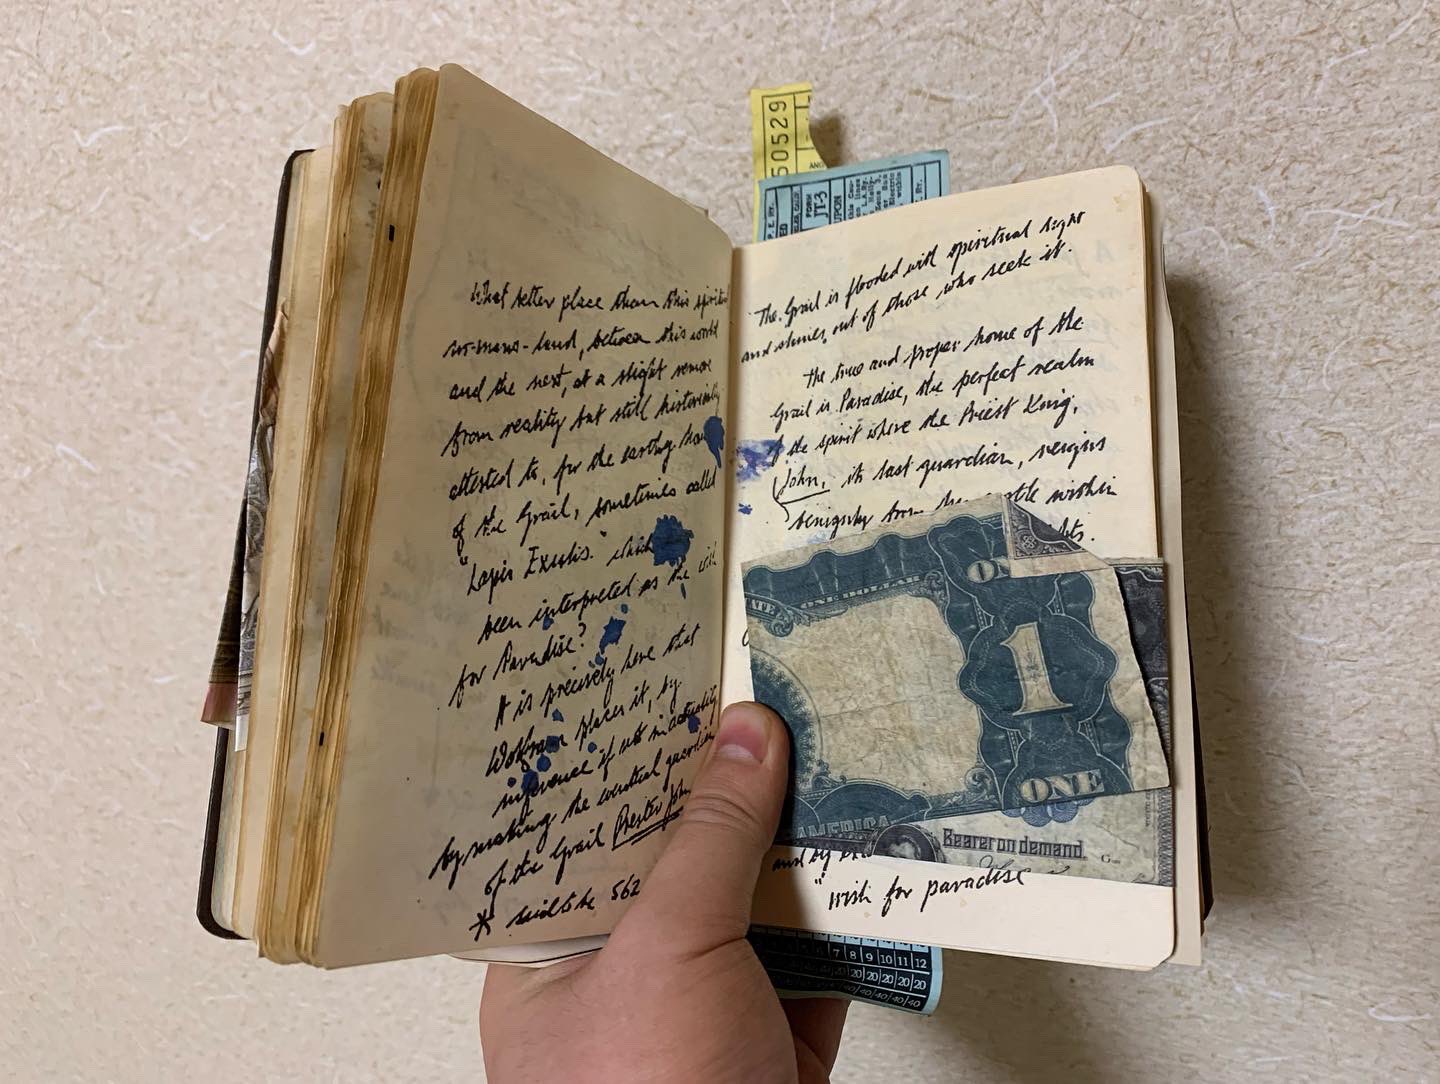 What better place than this spiritual
no-mans-land, between this world
and the next, at a slight remove
from reality but still historically
attested to, for the earthly home
of the Grail, sometimes called
"Lapis Exulis." which
been interpreted as the wish
for Paradise?
It is precisely here that
Wolfram places it, by
inference if not in actuality
by making the eventual guardian
of the Grail Prester John
* said to be 562
50529
P. E. Ry.
FORM
JT-3
The Grail is flooded with spiritual light
and shines, out of those who seek it.
The true and proper home of the
Grail is Paradise, the perfect realm
of the spirit where the Priest King,
John, its last guardian, reigns
benignly from within
ONE DOLLAR
1
ONE
AMERICA
Bearer on demand.
and by
"wish for paradise
7 8 9 10 11 12
20 20 20 20
40 40 40 40